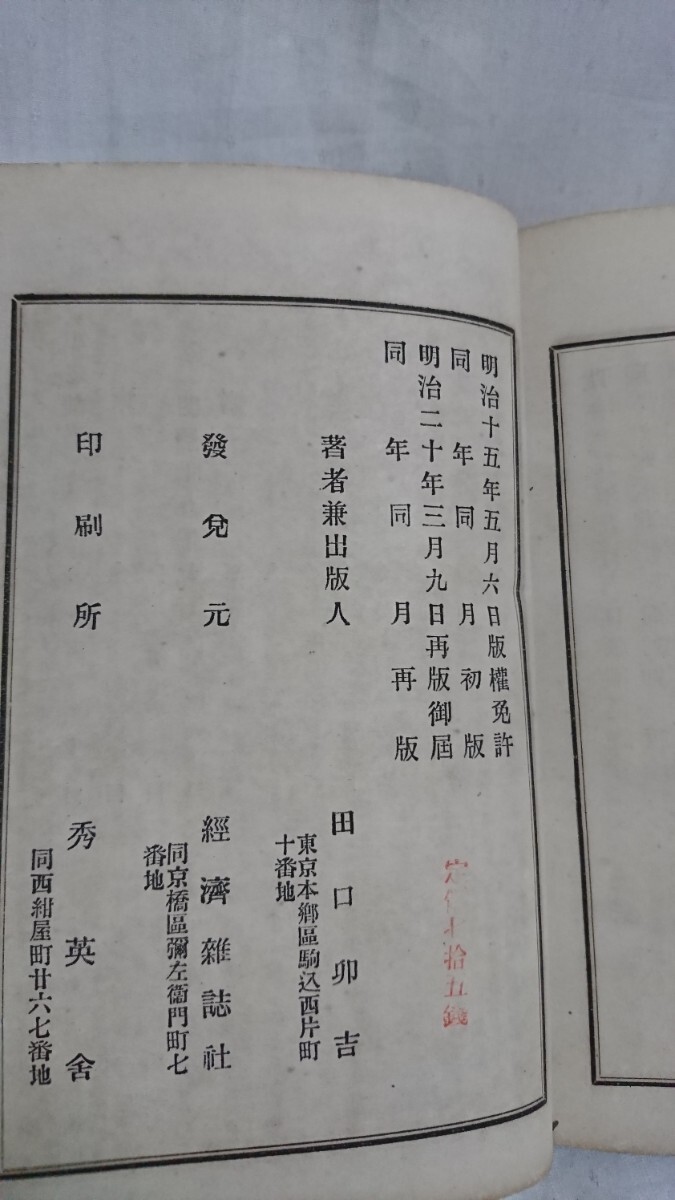 明治十五年五月六日版權免許
同年同月初版
明治二十年三月九日再版御屆
同年同月再版
著者兼出版人
田口卯吉
東京本鄕區駒込西片町
十番地
發兌元
經濟雜誌社
同京橋區彌左衞門町七
番地
印刷所
秀英舍
同西紺屋町廿六七番地